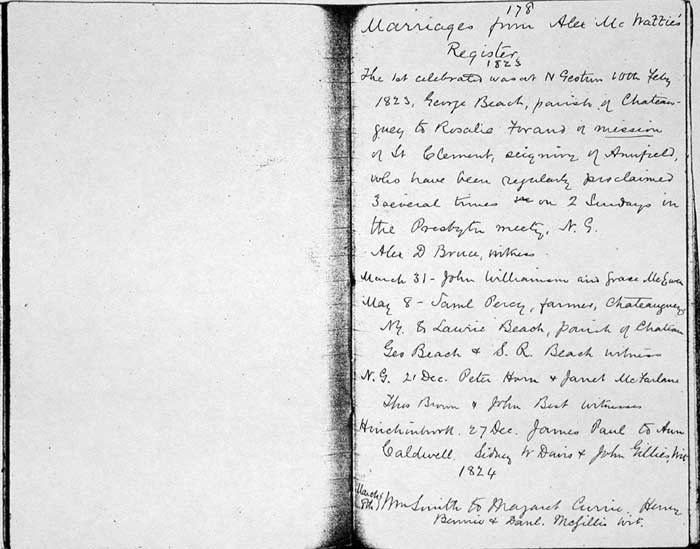 178
Marriages from Alex Mc Wattie's
Register
1823
The 1st celebrated was at N Geotun 10th Feby
1823, George Beach, parish of Chateau-
guey to Rosalie Forand of mission
of St Clement, seigniory of Annfield,
who have been regularly proclaimed
3 several times on 2 Sundays in
the Presbytn meetg, N. G.
Alex D Bruce, witness
March 31 - John Williamson and Grace McEwen
May 8 - Saml Percy, farmer, Chateauguey,
NY. & Laurie Beach, parish of Chateau
Geo Beach & S. R. Beach witness
N. G. 21 Dec. Peter Horn & Janet McFarlane
Thos Brown & John Best witnesses
Hinchinbrook. 27 Dec. James Paul to Ann
Caldwell. Sidney W Davis & John Gillies, Wit
1824
March 8th Wm Smith to Magaret Currie. Henry
Bennie & Danl. McGillis wit.